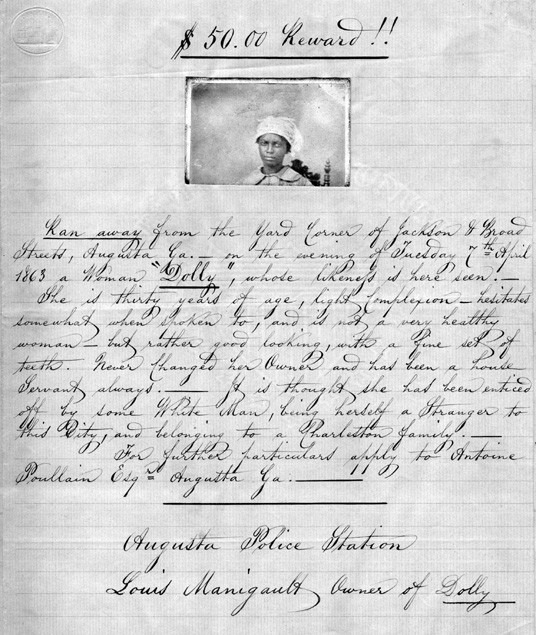 $ 50.00 Reward !!
Ran away from the Yard Corner of Jackson & Broad
Streets, Augusta Ga. — on the evening of Tuesday 7th April
1863 a Woman "Dolly", whose likeness is here seen. —
She is thirty years of age, light Complexion — hesitates
somewhat when spoken to, and is not a very healthy
woman — but rather good looking, with a fine set of
teeth. Never Changed her Owner and has been a house
Servant always. — It is thought she has been enticed
off by some White Man, being herself a Stranger to
this City, and belonging to a Charleston family. —
For further particulars apply to Antoine
Poullain Esqr Augusta Ga. —
Augusta Police Station
Louis Manigault Owner of Dolly